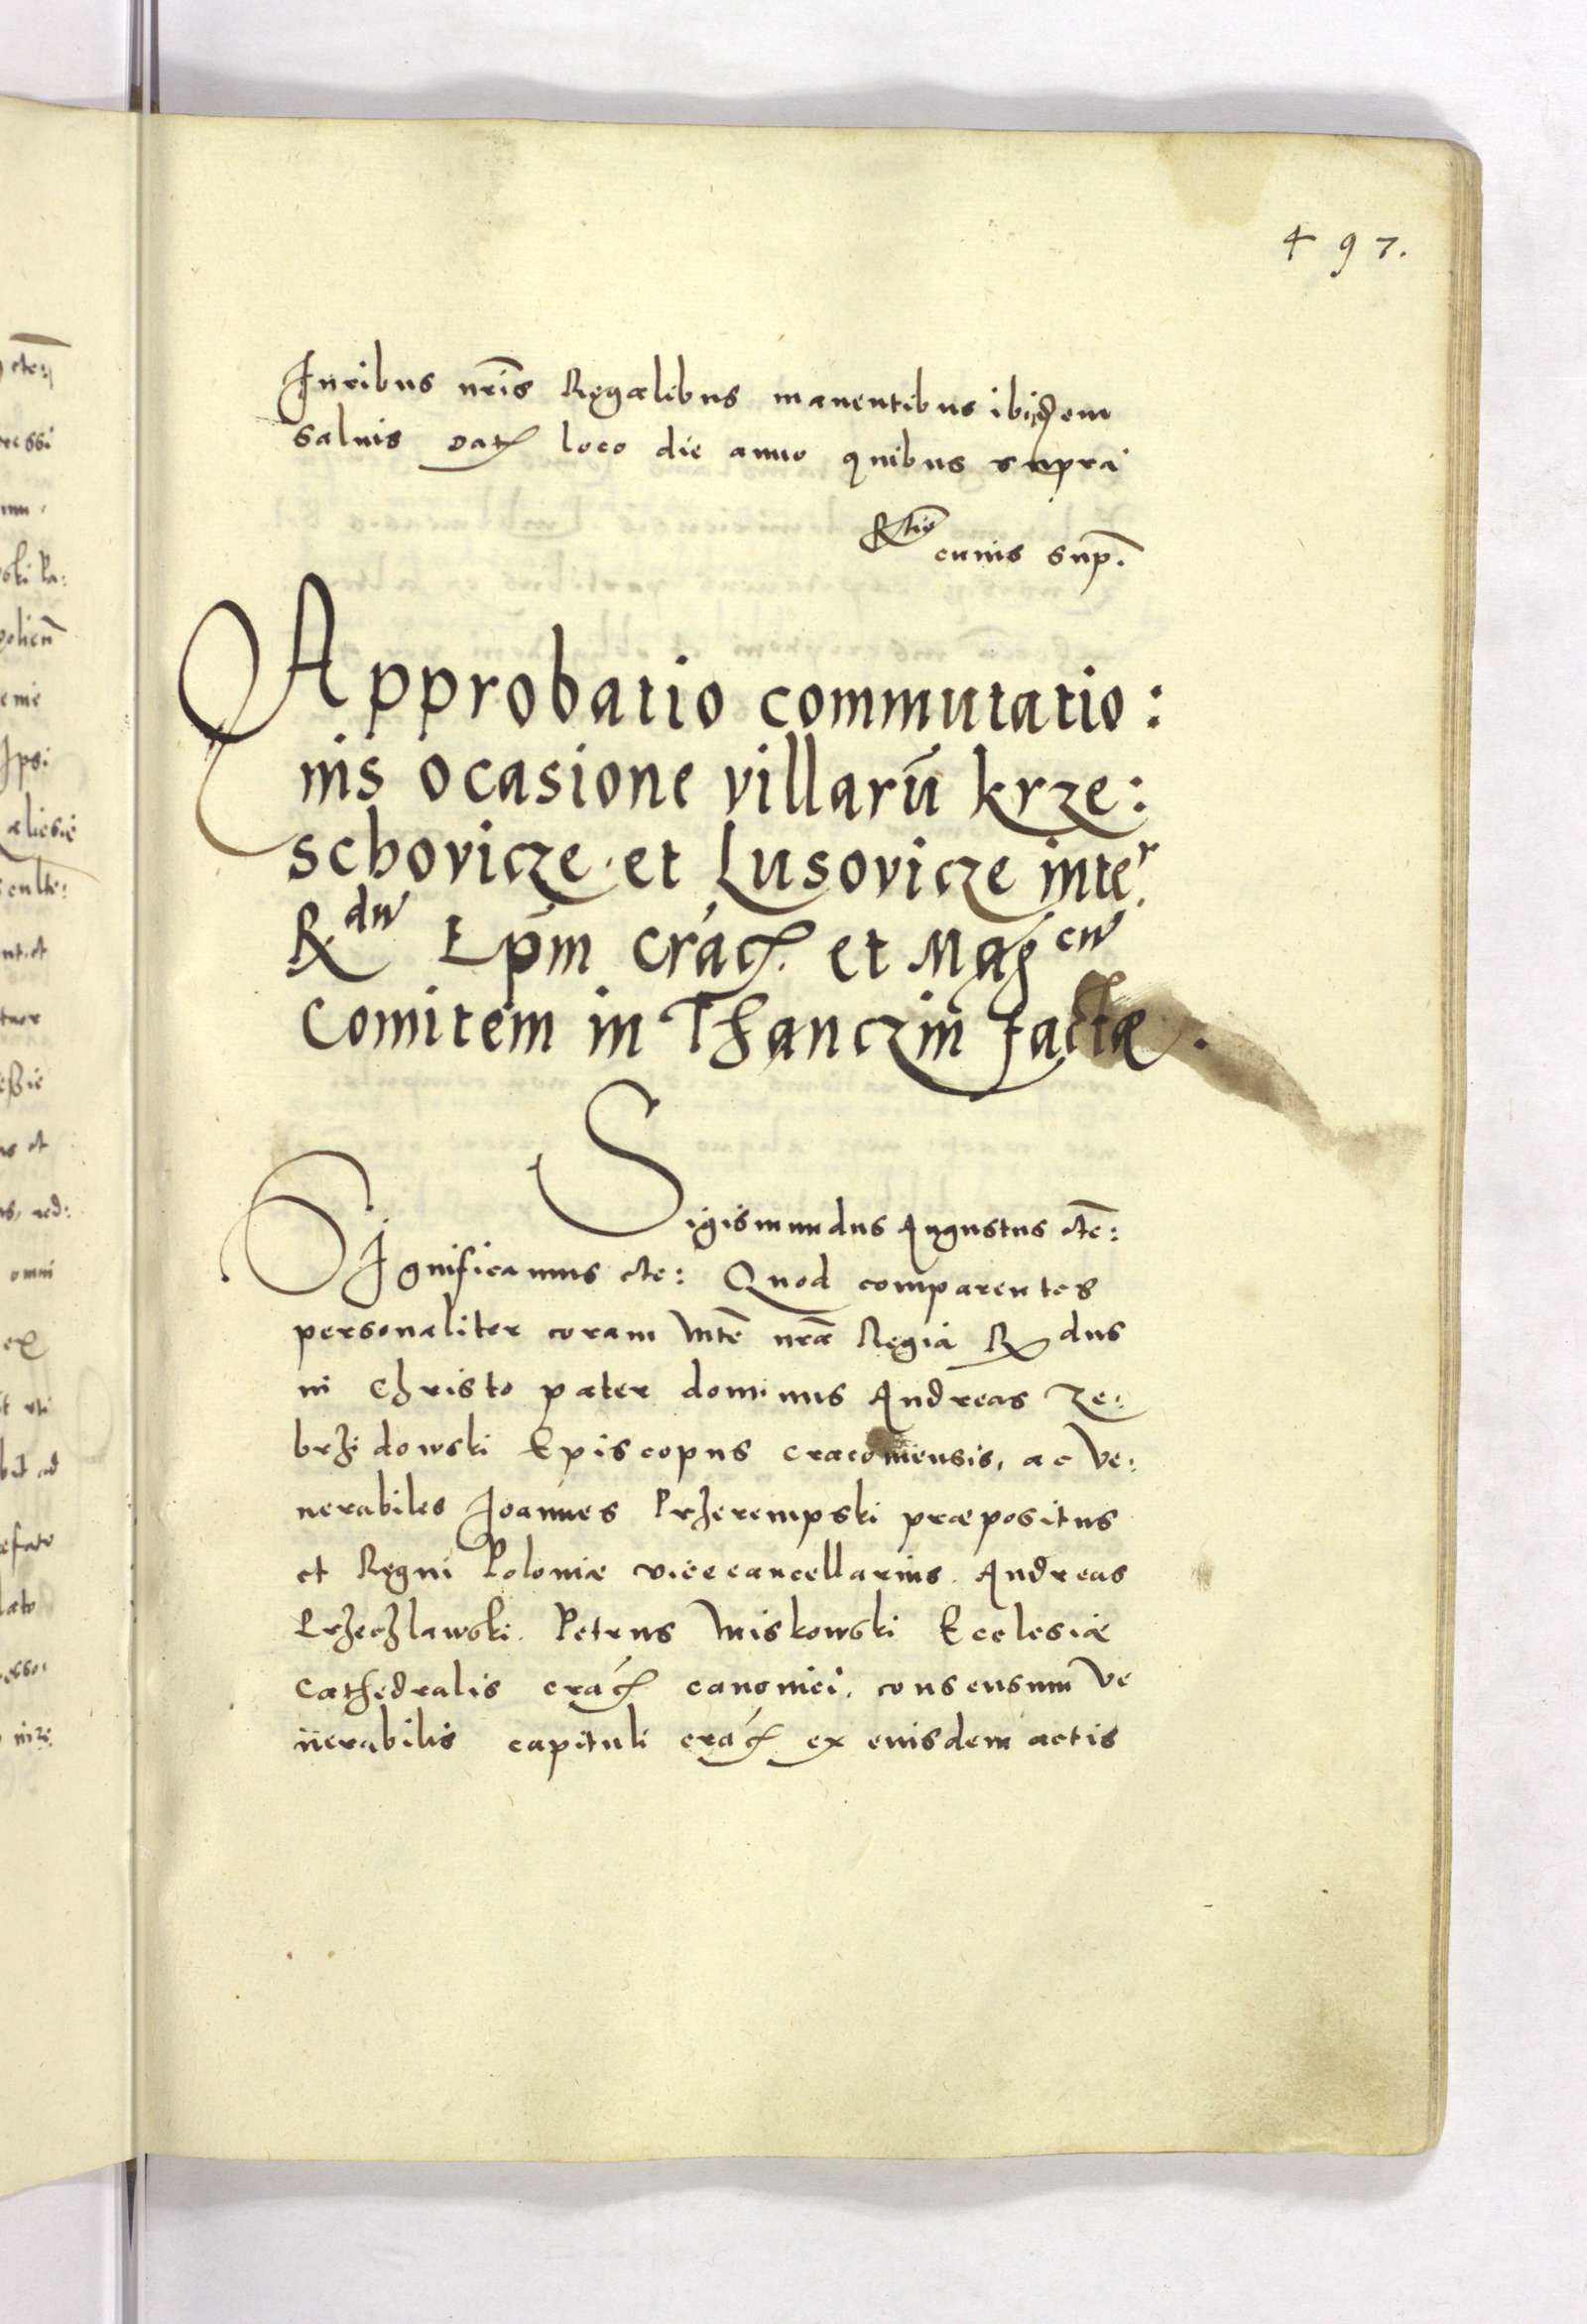 497.
Iuribus nr̃is Regalibus manentibus ibidem
saluis Dat loco die anno quibus supra
Rtio
cuius sup.
Approbatio commutatio:
nis ocasione villarũ krze:
schovicze et Lusovicze inter
Rdũ Epm̃ Crac. et Magcũ
Comitem in Thanczin factæ.
Sigismundus Augustus etc̃:
Significamus etc: Quod comparentes
personaliter coram Mte nrã Regia Rdus
in Christo pater dominus Andreas Ze:
brzidowski Episcopus cracouiensis, ac Ve:
nerabiles Joannes Przerempski præpositus
et Regni Poloniæ vicecancellarius. Andreas
Przeczlawski. Petrus Miskowski Ecclesiæ
Cathedralis crac canonici, consensum Ve
nerabilis capituli crac ex euisdem actis